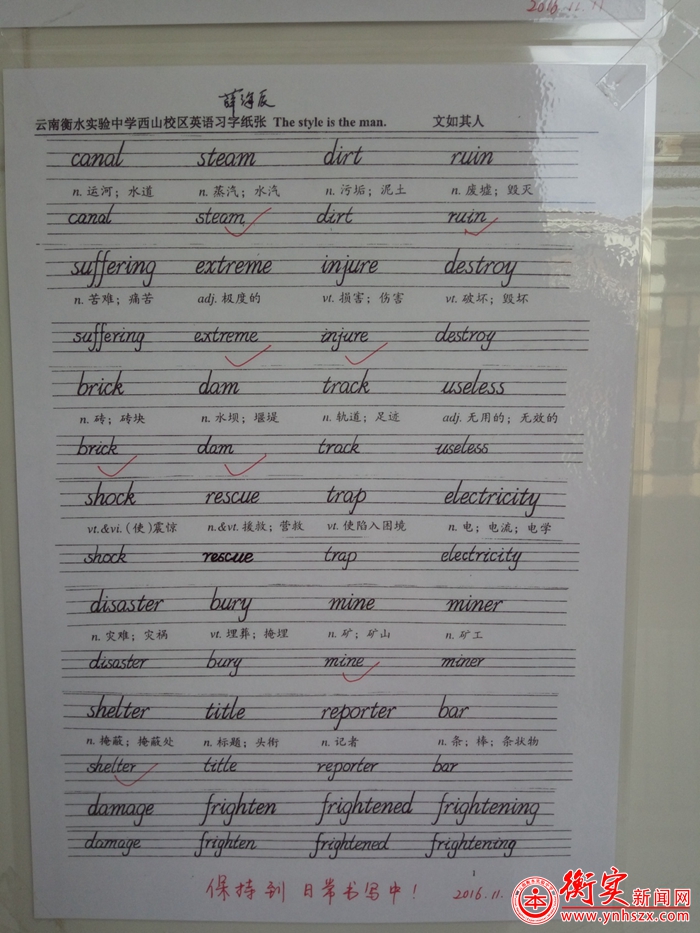 2016.12.11
薛泽辰
云南衡水实验中学西山校区英语习字纸张 The style is the man. 文如其人
canal steam dirt ruin
n. 运河；水道 n. 蒸汽；水汽 n. 污垢；泥土 n. 废墟；毁灭
canal steam dirt ruin
suffering extreme injure destroy
n. 苦难；痛苦 adj. 极度的 vt. 损害；伤害 vt. 破坏；毁坏
suffering extreme injure destroy
brick dam track useless
n. 砖；砖块 n. 水坝；堰堤 n. 轨道；足迹 adj. 无用的；无效的
brick dam track useless
shock rescue trap electricity
vt.&vi. (使)震惊 n.&vt. 援救；营救 vt. 使陷入困境 n. 电；电流；电学
shock rescue trap electricity
disaster bury mine miner
n. 灾难；灾祸 vt. 埋葬；掩埋 n. 矿；矿山 n. 矿工
disaster bury mine miner
shelter title reporter bar
n. 掩蔽；掩蔽处 n. 标题；头衔 n. 记者 n. 条；棒；条状物
shelter title reporter bar
damage frighten frightened frightening
damage frighten frightened frightening
1
保持到 日常书写中！ 2016.11.
衡实新闻网
www.ynhszx.com